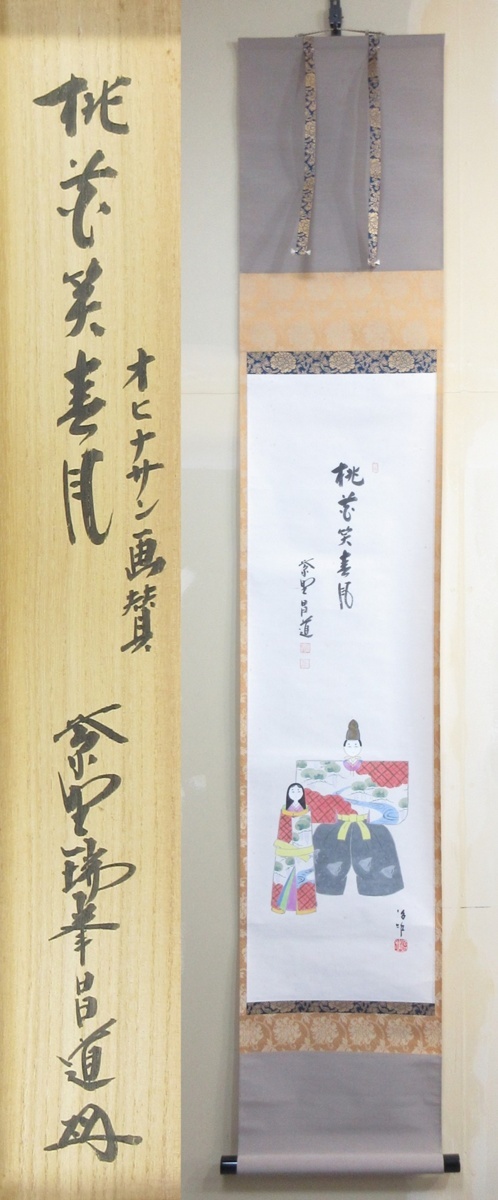 桃花笑春風
オヒナサン画賛
紫野瑞峯昌道
桃花笑春風
紫野昌道